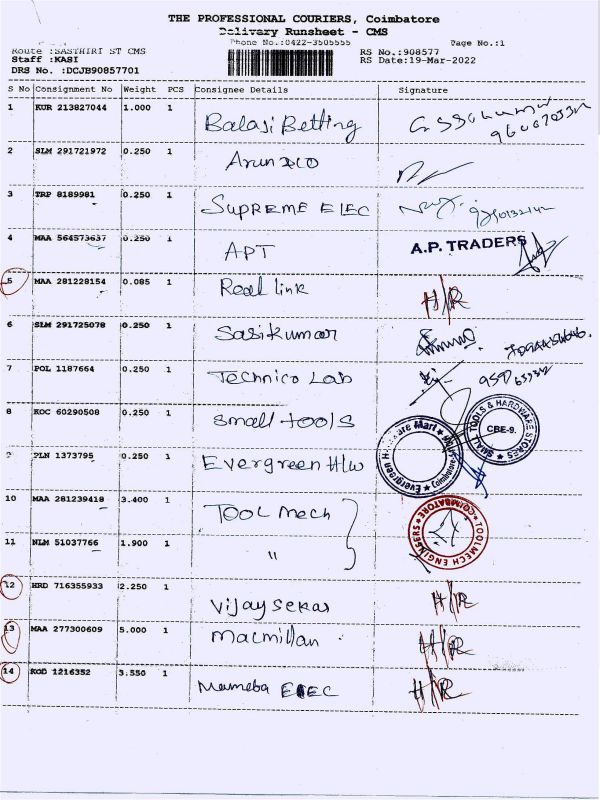 THE PROFESSIONAL COURIERS, Coimbatore
Delivery Runsheet - CMS
Phone No.:0422-3505555 Page No.:1
Route :SASTHIRI ST CMS RS No.:908577
Staff :KASI RS Date:19-Mar-2022
DRS No. :DCJB90857701
S No Consignment No Weight PCS Consignee Details Signature
1 KUR 213827044 1.000 1 Balaji Betting
2 SLM 291721972 0.250 1 Arun
3 TRP 8189981 0.250 1 SUPREME ELEC
4 MAA 564573637 0.250 1 APT A.P. TRADERS
5 MAA 281228154 0.085 1 Real link H/R
6 SLM 291725078 0.250 1 Sasikumar
7 POL 1187664 0.250 1 Technico Lab
8 KOC 60290508 0.250 1 Small tools SMALL TOOLS & HARDWARE STORES CBE-9.
9 PLN 1373795 0.250 1 Evergreen H/w Evergreen Hardware Mart Coimbatore
10 MAA 281239418 3.400 1 TOOL Mech TOOLMECH ENGINEERS COIMBATORE
11 NLM 51037766 1.900 1 "
12 HRD 716355933 2.250 1 Vijay sekar H/R
13 MAA 277300609 5.000 1 Macmillan H/R
14 KOD 1216352 3.550 1 ELEC H/R